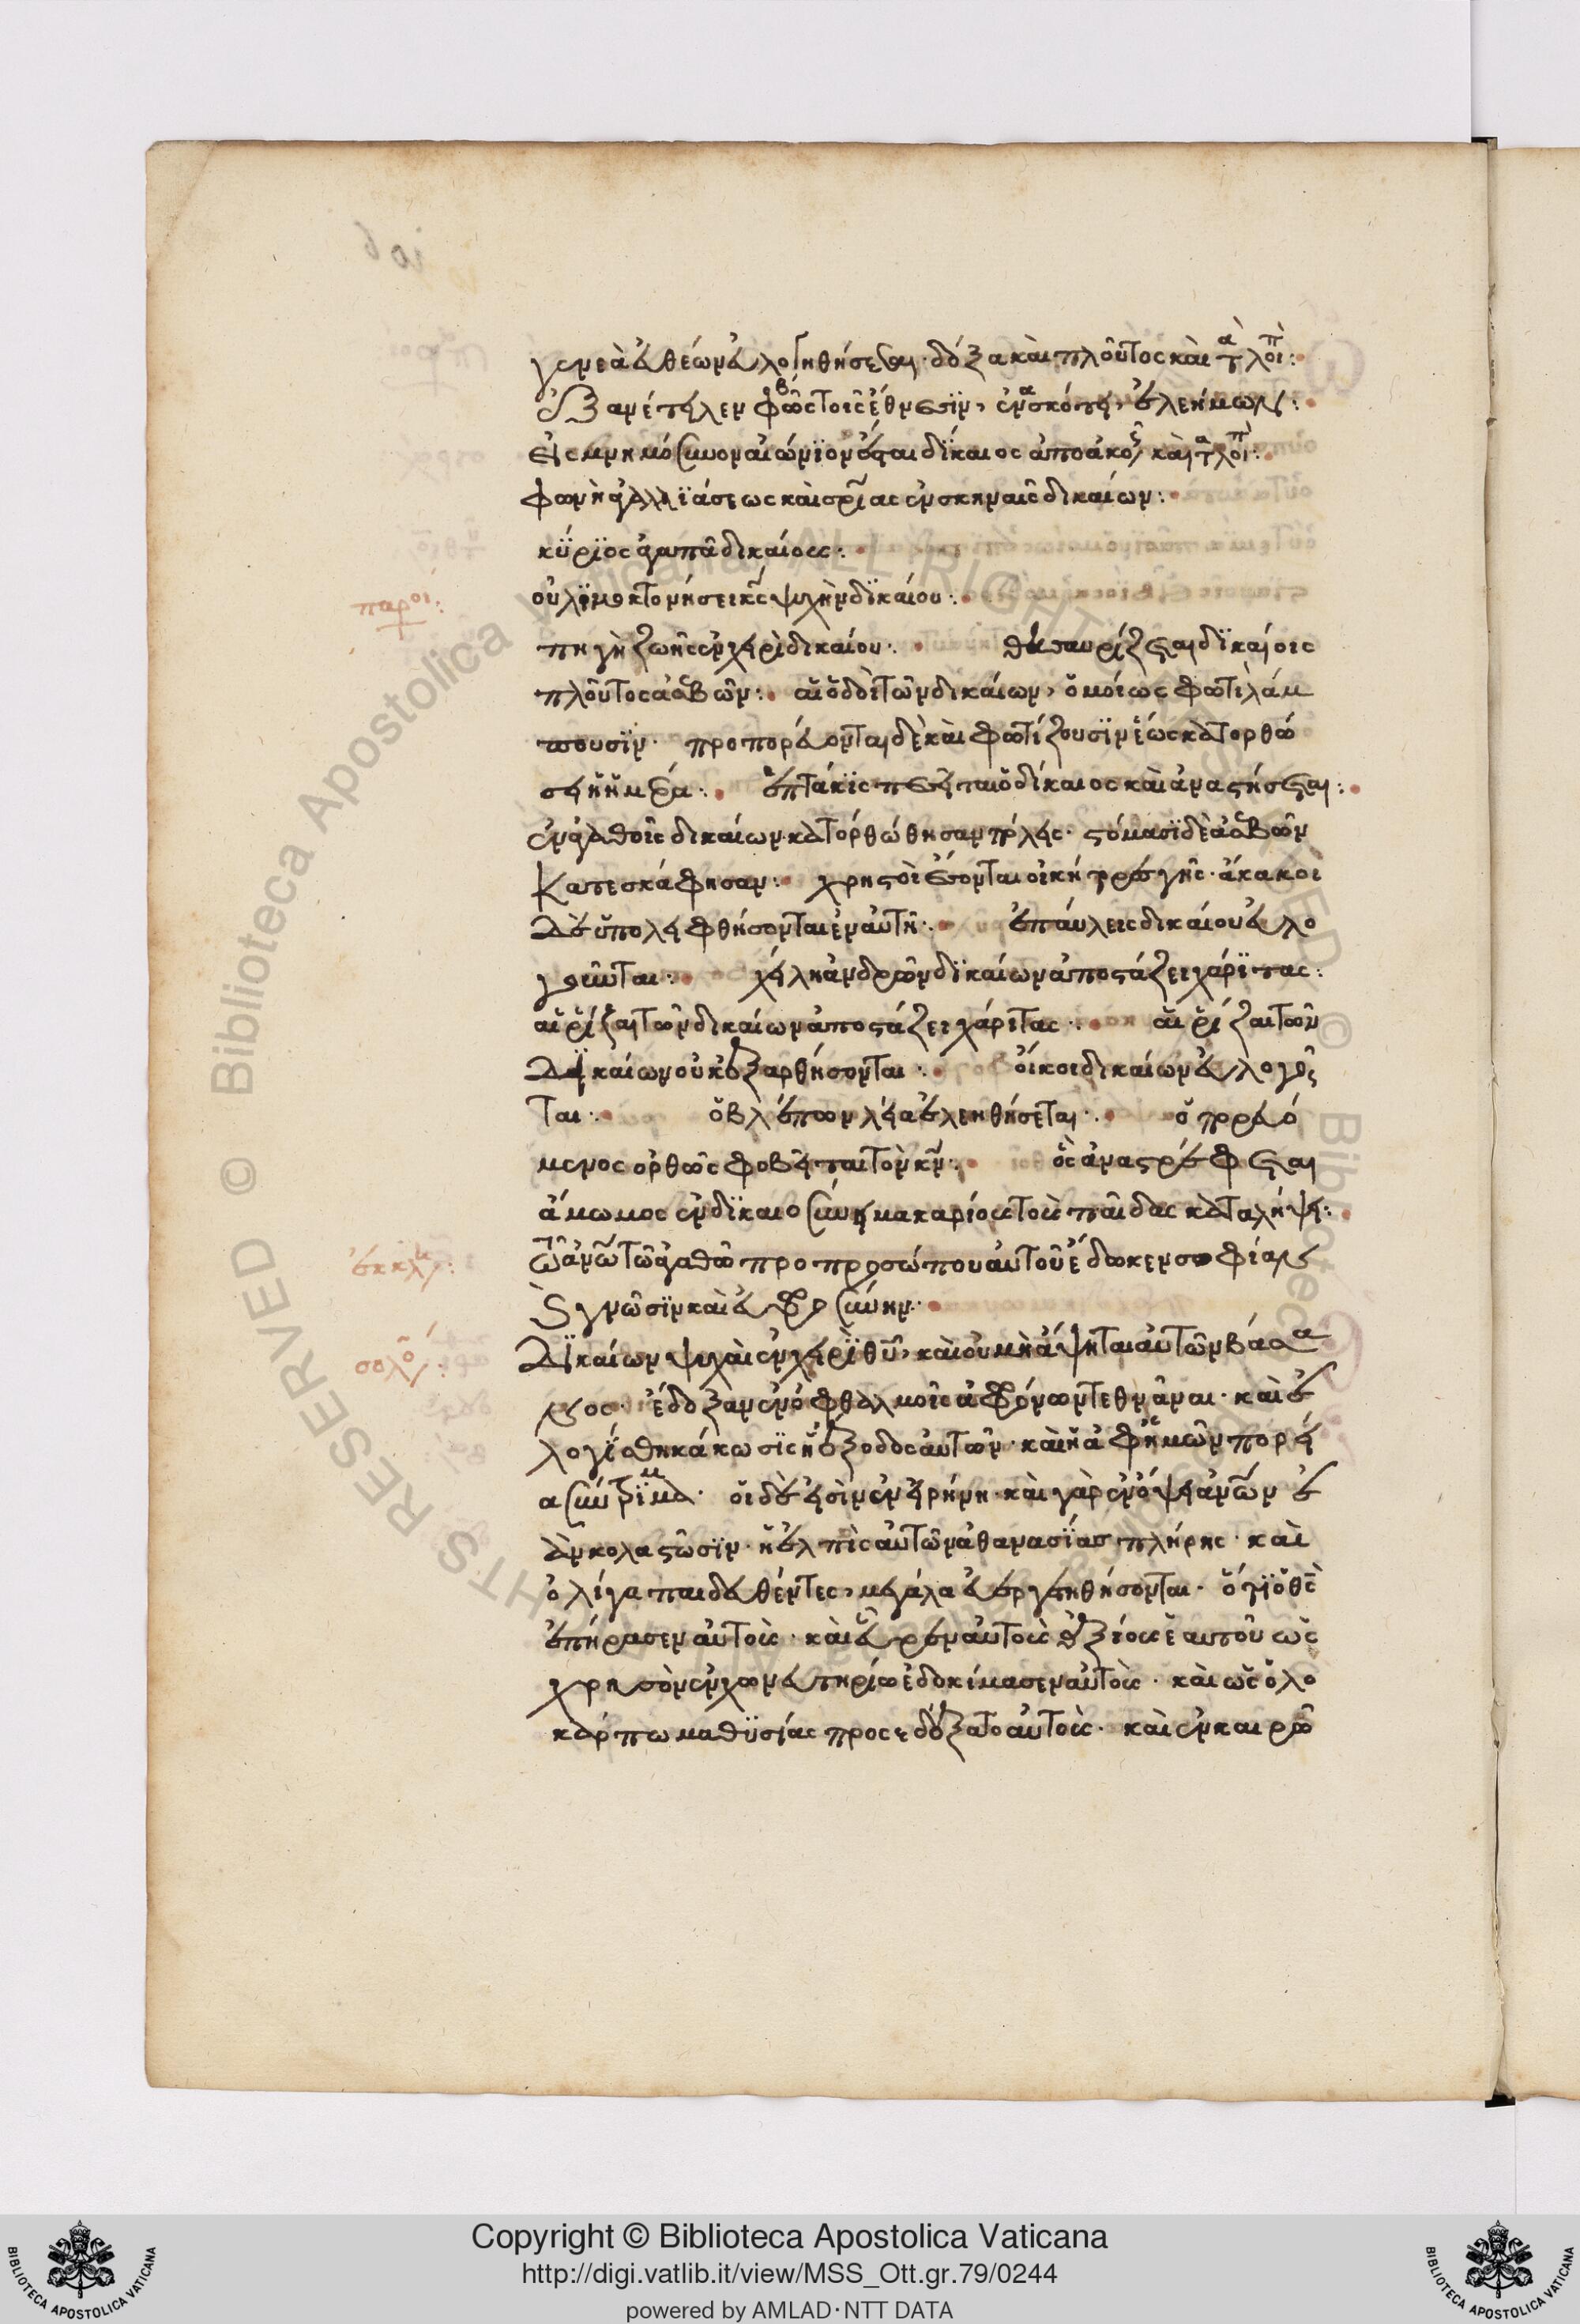 γενεὰ εὐθέων εὐλογηθήσεται· δόξα καὶ πλοῦτος καὶ τὰ λοιπὰ:
ἐξανέτειλεν φῶς τοῖς εὐθέσιν, ἐν σκότει, ἐλεήμων:
εἰς μνημόσυνον αἰώνϊον ἔσται δίκαιος ἀπὸ ἀκοῆς καὶ τὰ λοιπὰ:
φωνὴ ἀγαλλϊάσεως καὶ σρίας ἐν σκηναῖς δικαίων:
κύρϊος ἀγαπᾶ δικαίους:
παροι:
οὐ λϊμοκτονήσει κς ψυχὴν δϊκαίου:
πηγὴ ζωῆς ἐν χειρὶ δικαίου: θησαυρίζεται δϊκαίοις
πλοῦτος ἀσεβῶν: αἱ ὁδοὶ τῶν δικαίων, ὁμοίως φωτὶ λάμ
πουσϊν· προπορεύονται δὲ καὶ φωτίζουσϊν ἕως κατορθώ
σει ἡ ἡμέρα: ἑπτάκϊς πεσεῖται ὁ δίκαιος καὶ ἀναστήσεται:
ἐν ἀγαθοῖς δικαίων κατορθώθησαν πόλεις· στόμασϊ δὲ ἀσεβῶν
κατεσκάφησαν: χρηστοὶ ἔσονται οἰκήτορες γῆς· ἄκακοι
δὲ ὑπολειφθήσονται ἐν αὐτῆ: ἐπαύλεις δικαίου εὐλο
γοῦνται: χείλη ἀνδρῶν δϊκαίων ἀποστάζει χάρϊτας:
αἱ ῥίζαι τῶν δικαίων ἀποστάζει χάριτας: αἱ ῥίζαι τῶν
δϊκαίων οὐκ ἐξαρθήσονται: οἶκοι δικαίων εὐλογοῦν
ται: ὁ βλέπων λεῖα ἐλεηθήσεται: ὁ πορευό
μενος ὀρθῶς φοβεῖται τὸν κν: ὃς ἀναστρέφεται
ἄμωμος ἐν δϊκαιοσύνη μακαρίους τοὺς παῖδας καταλείψει:
ἐκκλη:
τῶ ἀνω τῶ ἀγαθῶ πρὸ προσώπου αὐτοῦ ἔδωκεν σοφίαν
καὶ γνῶσϊν καὶ εὐφροσύνην:
σολο:
Δϊκαίων ψυχαὶ ἐν χειρὶ θυ, καὶ οὐ μὴ ἅψηται αὐτῶν βάσα
νος· ἔδοξαν ἐν ὀφθαλμοῖς ἀφρόνων τεθνᾶναι· καὶ ἐ
λογίσθη κάκωσϊς ἡ ἔξοδος αὐτῶν· καὶ ἡ ἀφ' ἡμῶν πορεί
α σύντριμμα· οἱ δὲ εἰσὶν ἐν εἰρήνη· καὶ γὰρ ἐν ὄψει ἀνων ἐ
ὰν κολασθῶσϊν· ἡ ἐλπὶς αὐτῶν ἀθανασίας πλήρης· καὶ
ὀλίγα παιδευθέντες, μεγάλα εὐεργετηθήσονται· ὅτϊ ὁ θς
ἐπείρασεν αὐτοὺς· καὶ εὗρεν αὐτοὺς ἀξίους ἑαυτοῦ ὡς
χρυσὸν ἐν χωνευτηρίω ἐδοκίμασεν αὐτοὺς· καὶ ὡς ὁλο
κάρπωμα θυσίας προσεδέξατο αὐτοὺς· καὶ ἐν καιρῶ
Copyright © Biblioteca Apostolica Vaticana
http://digi.vatlib.it/view/MSS_Ott.gr.79/0244
powered by AMLAD·NTT DATA